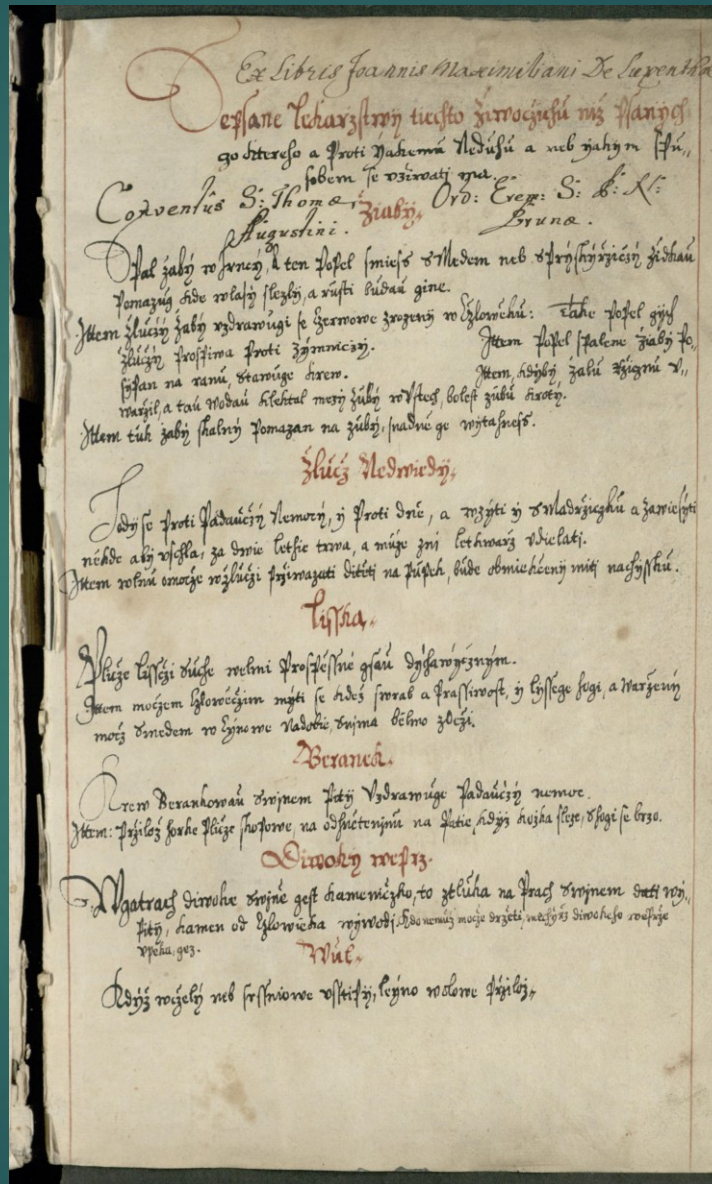 Ex Libris Joannis Maximiliani De Luxenthal
Sepsane Lekarzstwy tiechto Ziwocžichů niž Psanych
go kttereho a Proti Yakemu Neduhu a neb yakym Spu„
sobem se vžiwati ma.
Conventûs S: Thomæ Ord: Erem: S: P:
Augustini. Brunæ.
Žiaby.
Spal žaby w Hrncy, a ten Popel smiess s Medem neb s Pryskyržicžy židkau
Pomazug kde wlasy slezly, a rusti budau gine.
Ittem Žlucžy Žaby vzdrawugi se Czerwowe zrozeny w Czloweku: Take Popel gych
Žlucžy Prospiwa Proti Zymniczy. Ittem Popel spalene žiaby Po„
sypan na ranu, stawuge krew. Ittem, kdyby, žabu Ržicznu v„
waržil, a tau wodau klektal mezy zuby w Vstech, bolest zubu kroty.
Ittem tuk žaby skalny Pomazan na zuby, snadnė ge wytahness.
Žlucž Nedwiedy.
Hody se Proti Padaucžy Nemocy, y Proti dnė, a wzyti y s Madržiczku a zawiesyti
nėkde aby vschla, za dwie lethie trwa, a muže zni lethwarž vdielati.
Ittem wlnu omocže w žlucži Pržiwazati ditėti na Pupek, bude obmiekcženy miti nachyssku.
Lisska.
Pluže Lissczi suche welmi Prospėssnė gsau dychawycznym.
Ittem moczem Czlowecžim myti se kdež swrab a Prassiwost, y lyssege hogi, a warženy
mocž s medem w Cynowe nadobie, snima bėlmo z Oczi.
Beranek.
Krew Berankowau s winem Pity Vzdrawuge Padaucžy nemoc.
Ittem: Pržilož horke Plicze skopowe, na odhnėteninu na Patie, kdyz kožka sleze, shogi se brzo.
Diwoky weprz.
W gatrach diwoke swinė gest kameniczko, to ztluka na Prach s winem dati wy„
Pity, kamen od Czlowieka wywodi. Kdo nemuž mocže držeti, mechyrž diwokeho weprže
vpeka, gez.
Wul.
Když wcžely neb srssniowe vsstipy, leyno wolowe Pržilož„